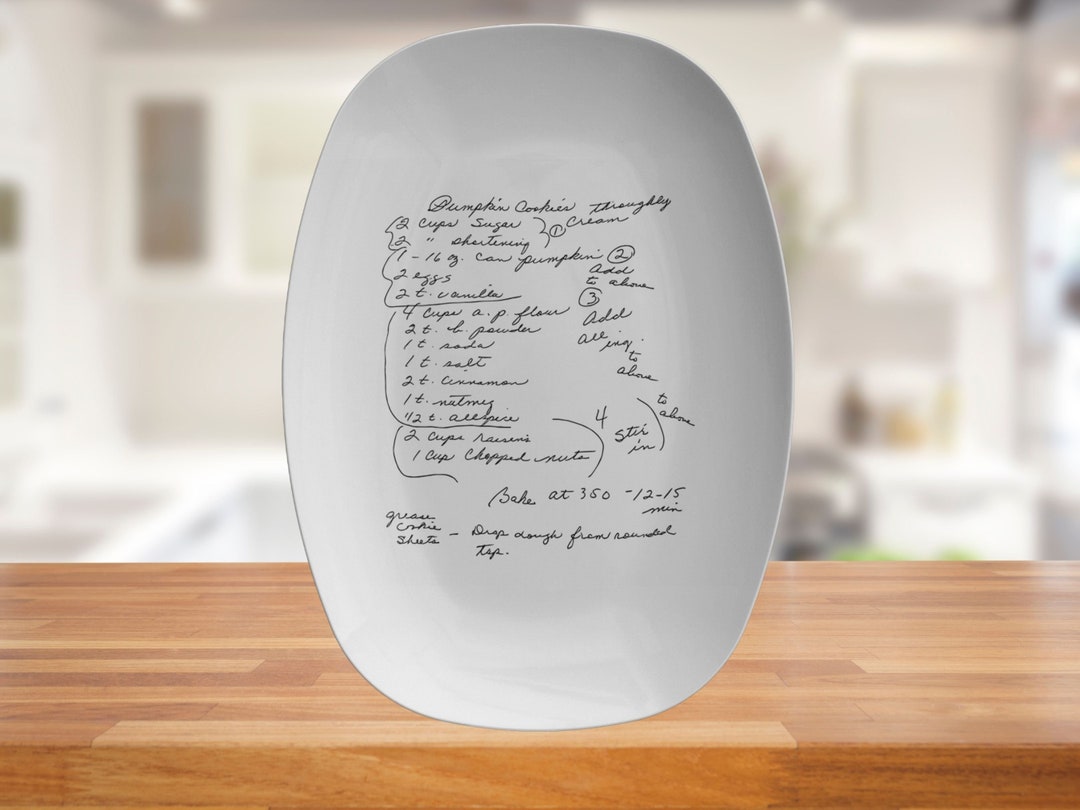 Pumpkin Cookies
2 cups Sugar
2 " shortening
① Cream throughly
1 - 16 oz. can pumpkin
2 eggs
2 t. vanilla
② Add
to above
4 cups a.p. flour
2 t. b. powder
1 t. soda
1 t. salt
2 t. cinnamon
1 t. nutmeg
1/2 t. allspice
③
Add
all ing.
to
above
2 cups raisins
1 cup chopped nuts
4
Stir
in
to
above
Bake at 350 - 12-15
min
grease
Cookie
Sheets - Drop dough from rounded
tsp.